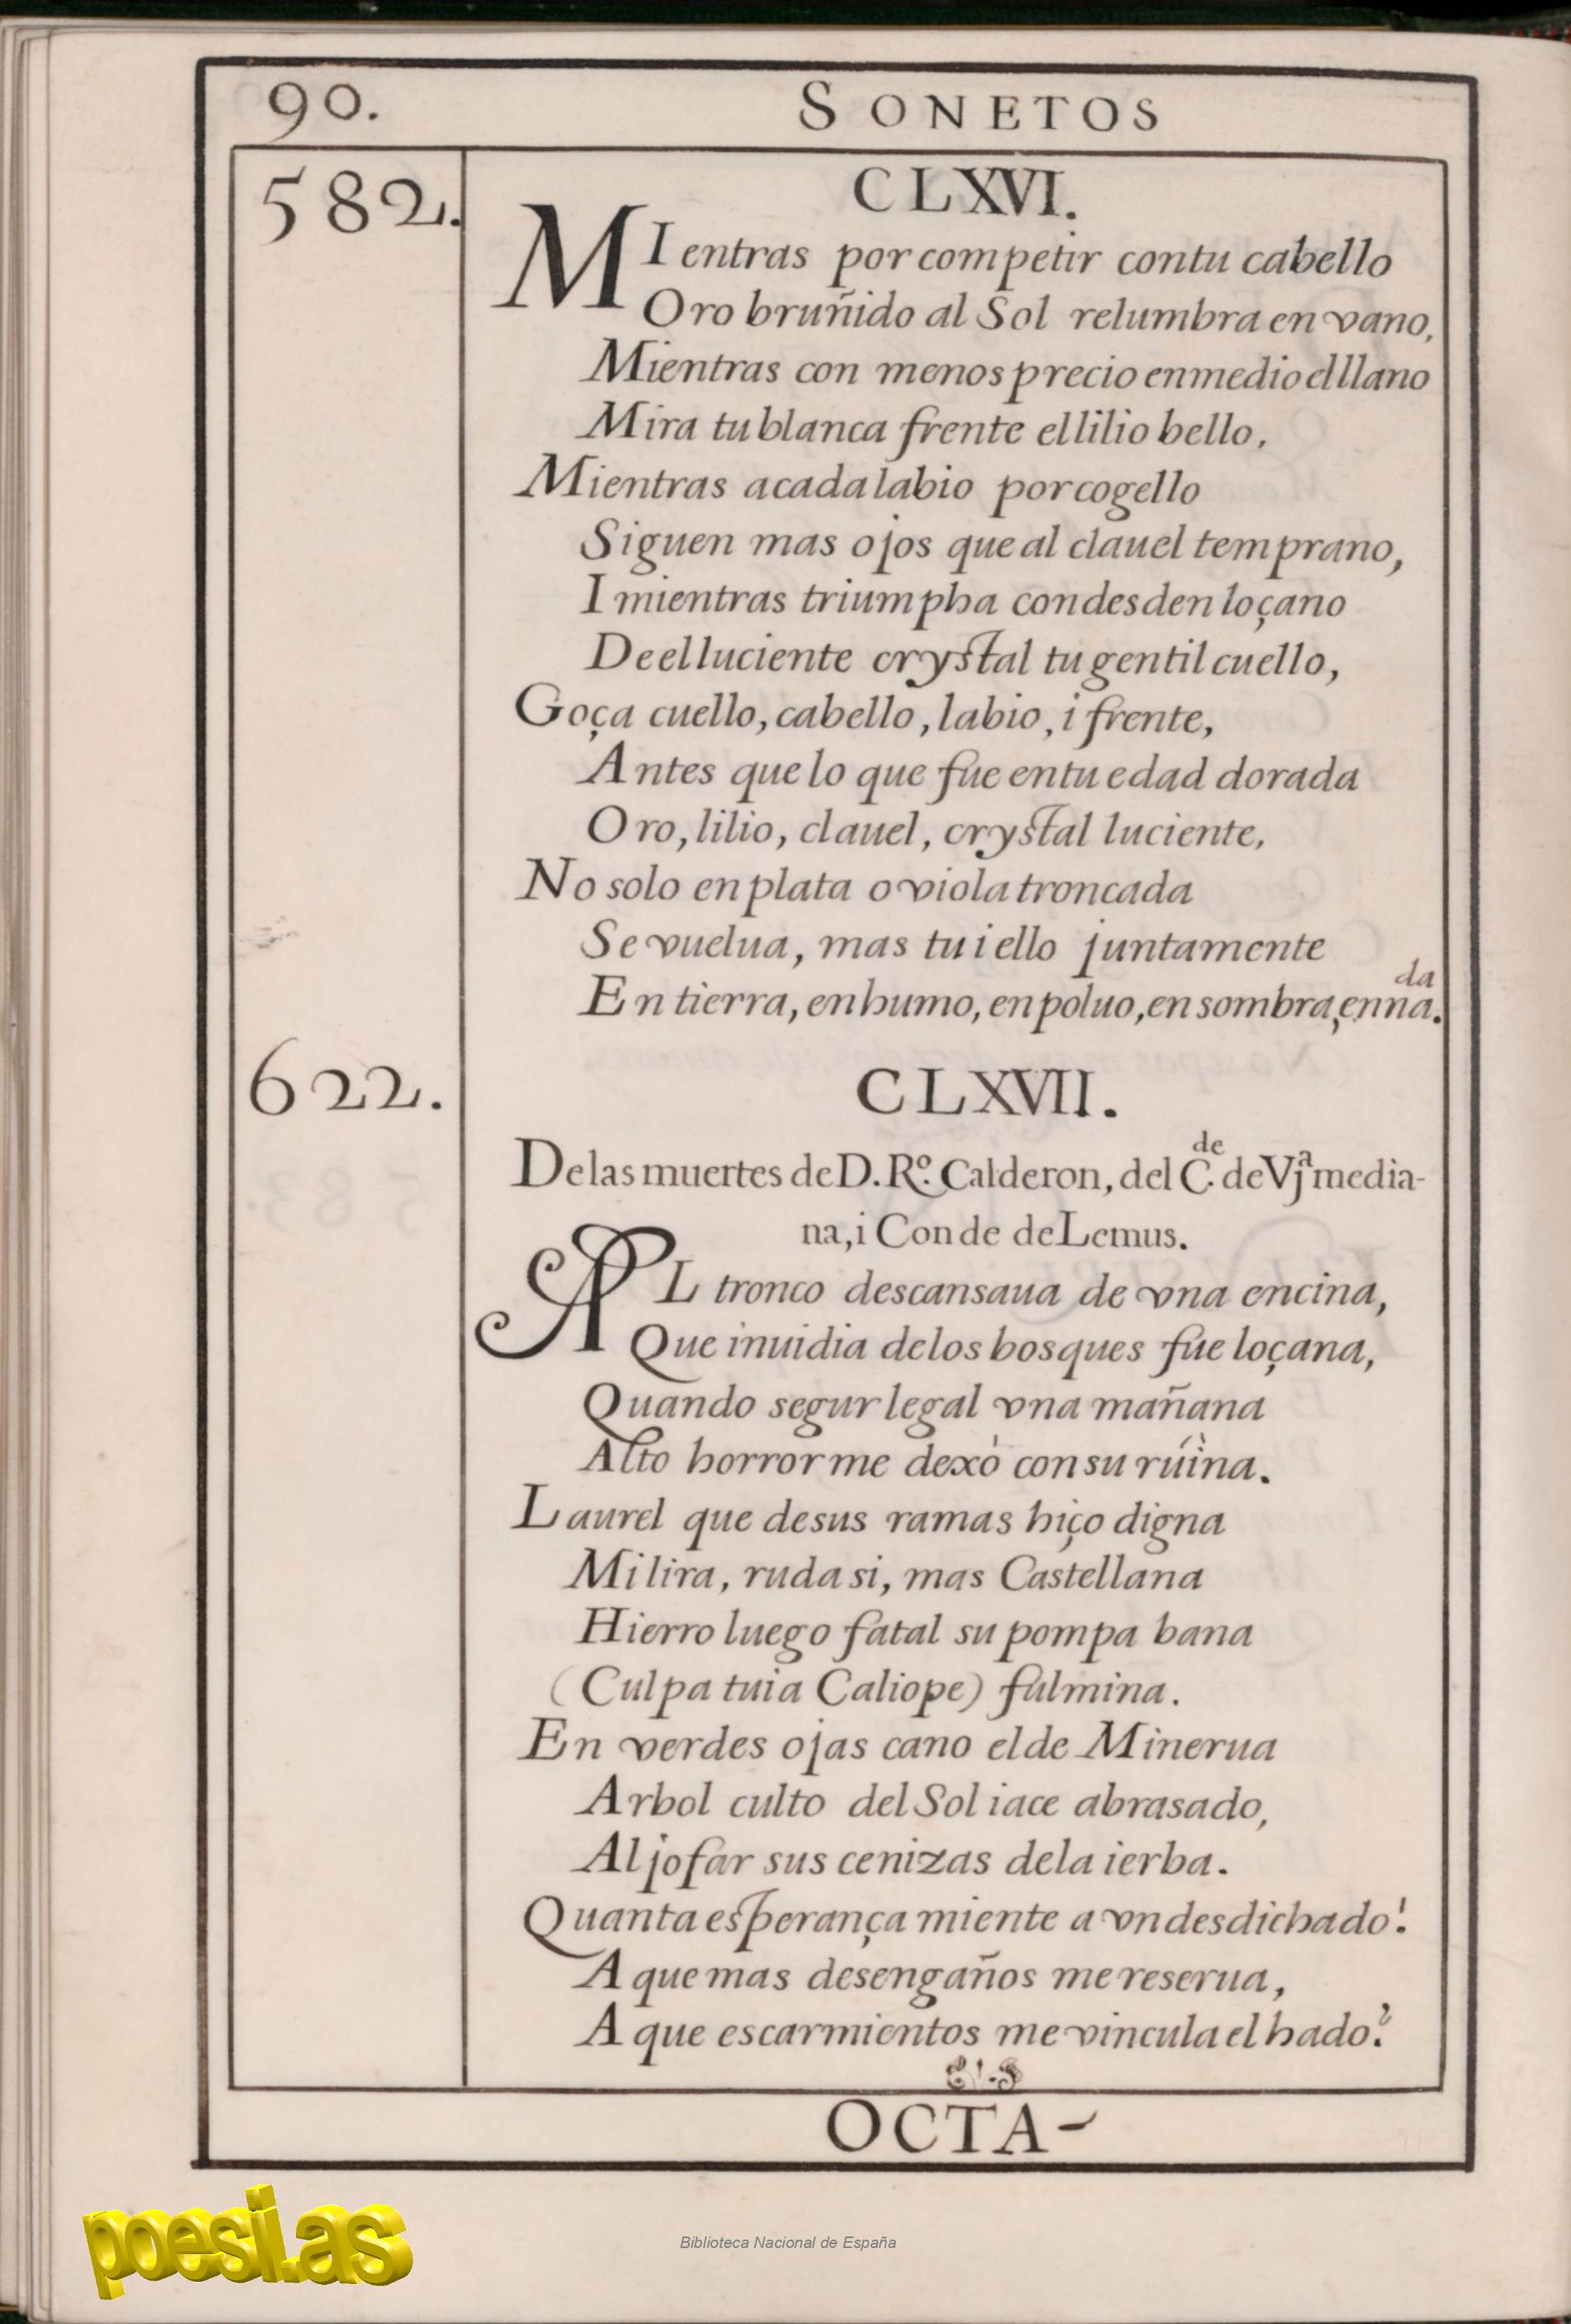 90. SONETOS
582. CLXVI.
MIentras por competir con tu cabello
Oro bruñido al Sol relumbra en vano,
Mientras con menosprecio en medio el llano
Mira tu blanca frente el lilio bello,
Mientras a cada labio por cogello
Siguen mas ojos que al clauel temprano,
I mientras triumpha con desden loçano
De el luciente crystal tu gentil cuello,
Goça cuello, cabello, labio, i frente,
Antes que lo que fue en tu edad dorada
Oro, lilio, clauel, crystal luciente,
No solo en plata o viola troncada
Se vuelua, mas tu i ello juntamente
En tierra, en humo, en poluo, en sombra, en nada.
622. CLXVII.
De las muertes de D. Rº. Calderon, del C.de de Vjª media-
na, i Conde de Lemus.
AL tronco descansaua de vna encina,
Que inuidia de los bosques fue loçana,
Quando segur legal vna mañana
Alto horror me dexò con su rúìna.
Laurel que de sus ramas hiço digna
Mi lira, ruda si, mas Castellana
Hierro luego fatal su pompa bana
(Culpa tuia Caliope) fulmina.
En verdes ojas cano el de Minerua
Arbol culto del Sol iace abrasado,
Aljofar sus cenizas de la ierba.
Quanta esperança miente a vn desdichado!
A que mas desengaños me reserua,
A que escarmientos me vincula el hado?
OCTA-
poesi.as
Biblioteca Nacional de España